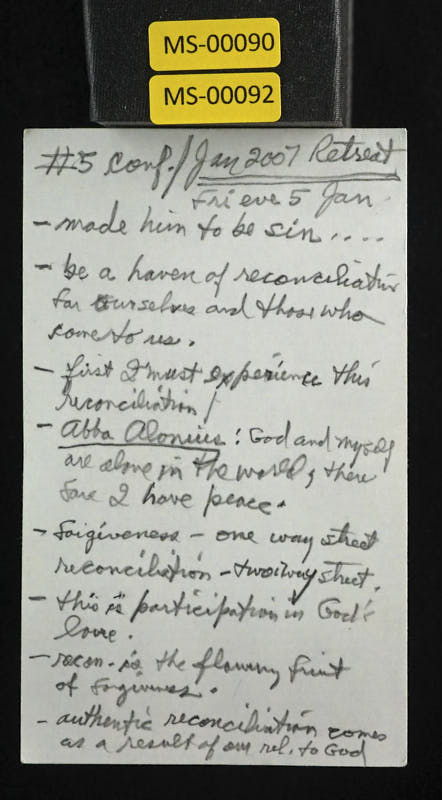 MS-00090
MS-00092
#5 conf./Jan 2007 Retreat
Fri eve 5 Jan.
- made him to be sin....
- be a haven of reconciliation
for ourselves and those who
come to us.
- first I must experience this
reconciliation!
- Abba Alonius: God and myself
are alone in the world, there
fore I have peace.
- forgiveness - one way street
reconciliation - two way street.
- this is participation in God's
love.
- recon. is the flowing fruit
of forgiveness.
- authentic reconciliation comes
as a result of our rel. to God